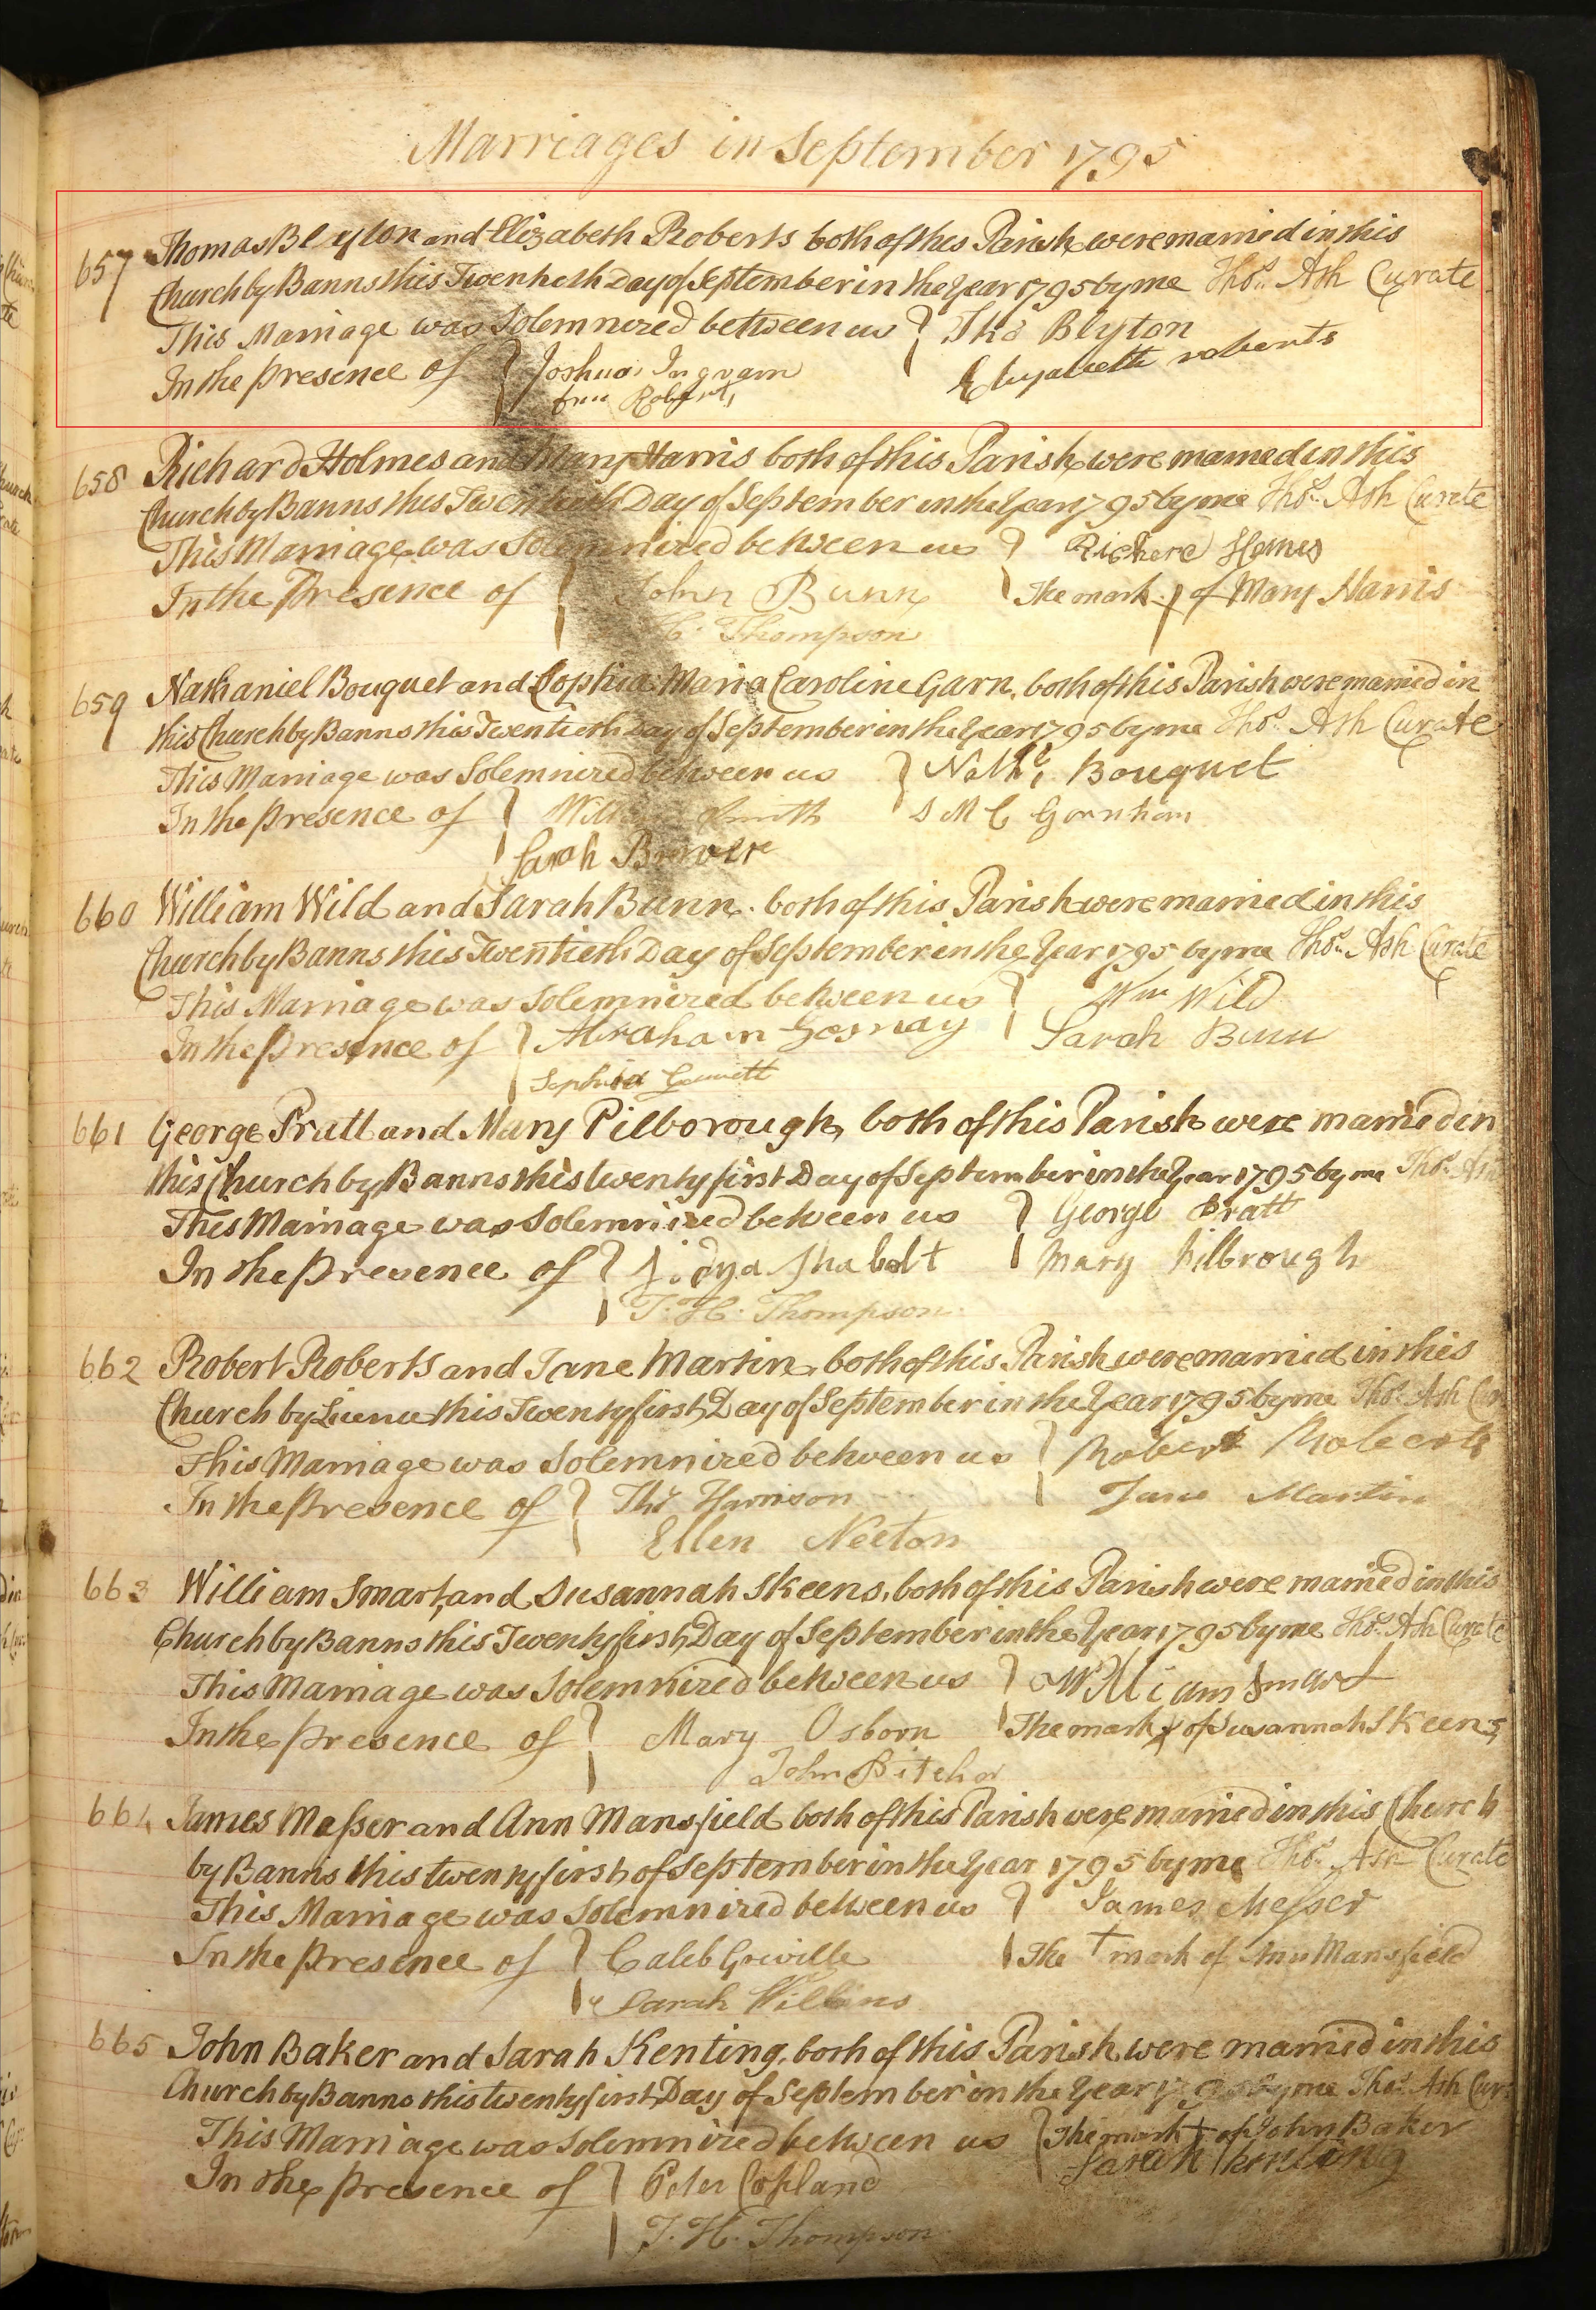 Marriages in September 1795
657 Thomas Blyton and Elizabeth Roberts both of this Parish were married in this
Church by Banns this Twentieth Day of September in the Year 1795 by me Thos. Ash Curate
This Marriage was Solemnized between us } Tho Blyton
In the presence of } Joshua Ingram Elizabeth roberts
Roberts
658 Richard Holmes and Mary Harris both of this Parish were married in this
Church by Banns this Twentieth Day of September in the Year 1795 by me Thos. Ash Curate
This Marriage was Solemnized between us } Richard Homes
In the Presence of } John Bunn The mark of Mary Harris
H. Thompson
659 Nathaniel Bouquet and Sophia Maria Caroline Garn. both of this Parish were married in
this Church by Banns this Twentieth Day of September in the Year 1795 by me Thos. Ash Curate
This Marriage was Solemnized between us } Nathl. Bouquet
In the presence of } Smith S M C Garnham
Sarah Brewer
660 William Wild and Sarah Bunn. both of this Parish were married in this
Church by Banns this Twentieth Day of September in the Year 1795 by me Thos. Ash Curate
This Marriage was Solemnized between us } Wm Wild
In the presence of } Abraham Gesnay Sarah Bunn
Sophia
661 George Pratt and Mary Pilborough, both of this Parish were married in
this Church by Banns this twenty first Day of September in the Year 1795 by me Thos. Ash
This Marriage was Solemnized between us } George Pratt
In the Presence of } Lidya Shabolt Mary Pilbrough
T. H. Thompson
662 Robert Roberts and Jane Martin, both of this Parish were married in this
Church by Licence this Twenty first Day of September in the Year 1795 by me Thos. Ash Cur
This Marriage was Solemnized between us } Robert Roberts
In the Presence of } Thos Harrison Jane Martin
Ellen Neeton
663 William Smart and Susannah Skeens, both of this Parish were married in this
Church by Banns this Twenty first Day of September in the Year 1795 by me Thos. Ash Curate
This Marriage was Solemnized between us } William Smart
In the presence of } Mary Osborn The mark x of Susannah Skeens
John Pitcher
664 James Messer and Ann Mansfield both of this Parish were married in this Church
by Banns this twenty first of September in the Year 1795 by me Thos. Ash Curate
This Marriage was Solemnized between us } James Messer
In the presence of } Caleb Greville The + mark of Ann Mansfield
Sarah Wilkins
665 John Baker and Sarah Kenting, both of this Parish were married in this
Church by Banns this twenty first Day of September in the Year 1795 by me Thos. Ash Cur
This Marriage was Solemnized between us { The mark + of John Baker
In the presence of } Peter Copland Sarah Kenting
T. H. Thompson